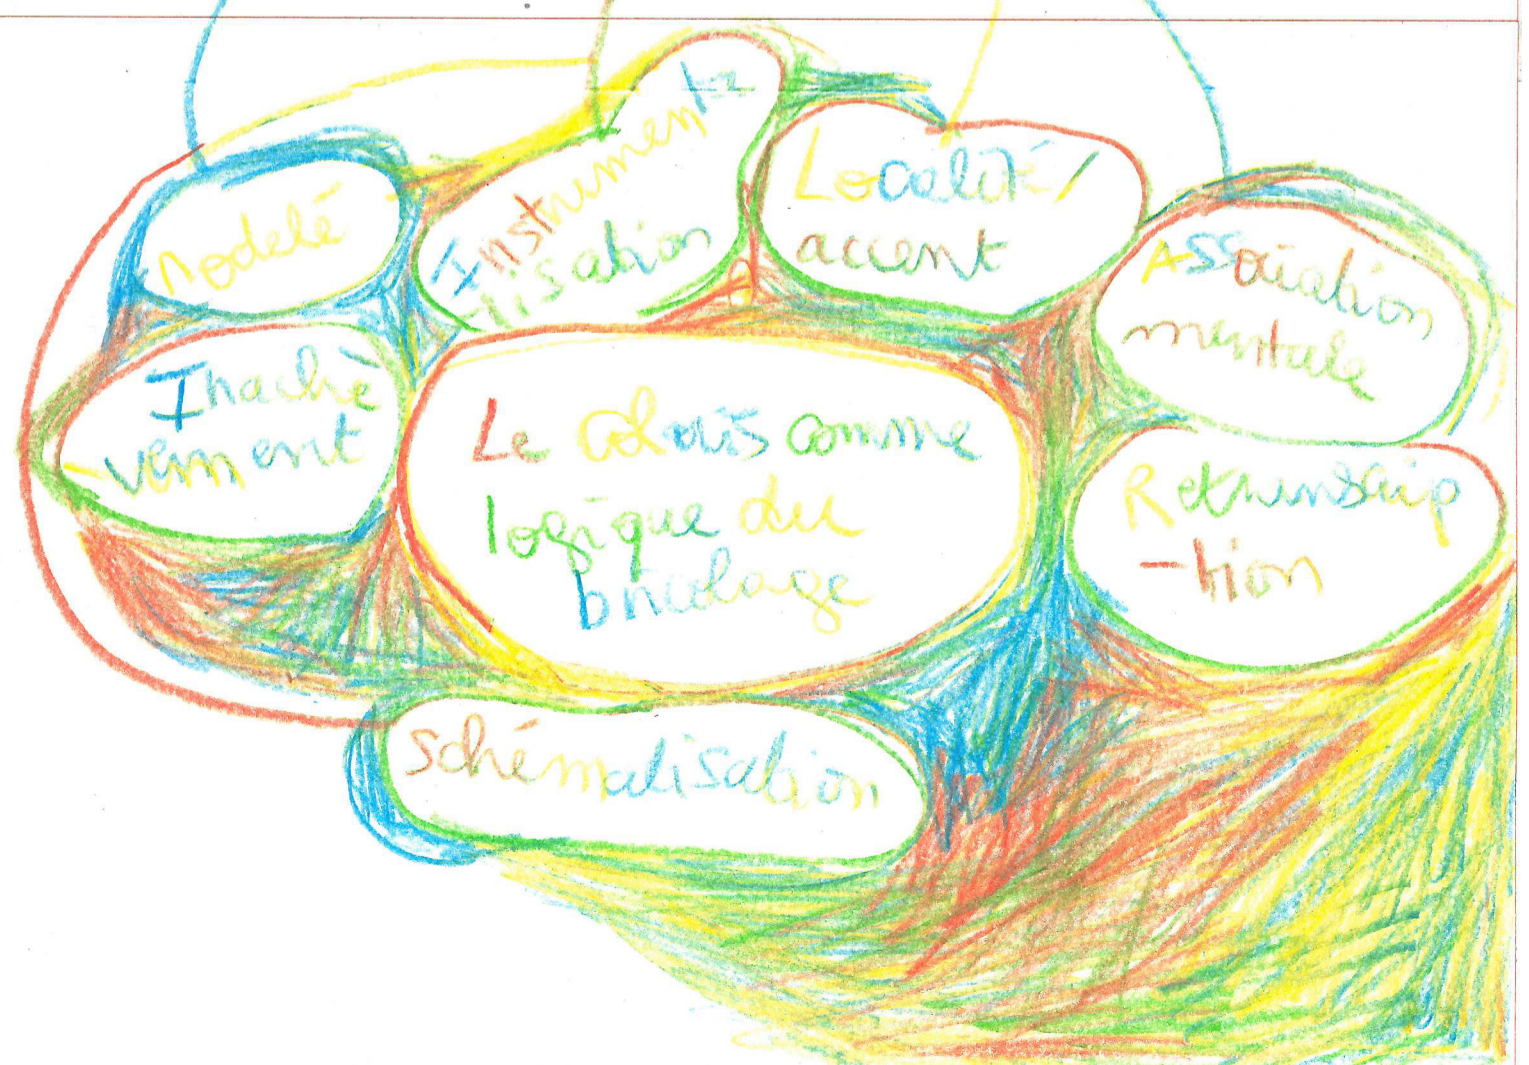 Modelé
Instrumenta
-lisation
Localité/
accent
Association
mentale
Inachè
-vement
Le coloris comme
logique du
bricolage
Retranscrip
-tion
Schématisation